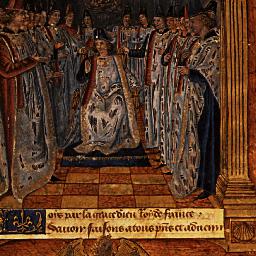 oys par la grace de dieu Roy de france.
Sauoir faisons a tous pñs et aduenir